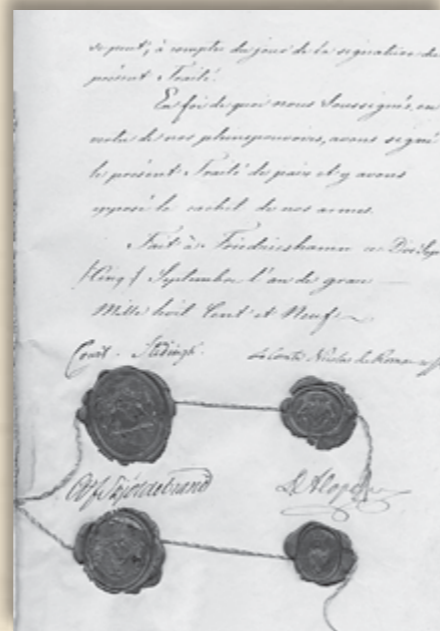 se peut, à compter du jour de la signature du
présent Traité.
En foi de quoi nous Soussignés, en
vertu de nos pleinspouvoirs, avons signé
le présent Traité de paix et y avons
apposé le cachet de nos armes.
Fait à Friedrichshamn ce Dix Sept
[Cinq] Septembre l'an de grace
Mille huit Cent et Neuf
Court. Stedingk.
Le Comte Nicolas de Romanzoff
D'Alopeus